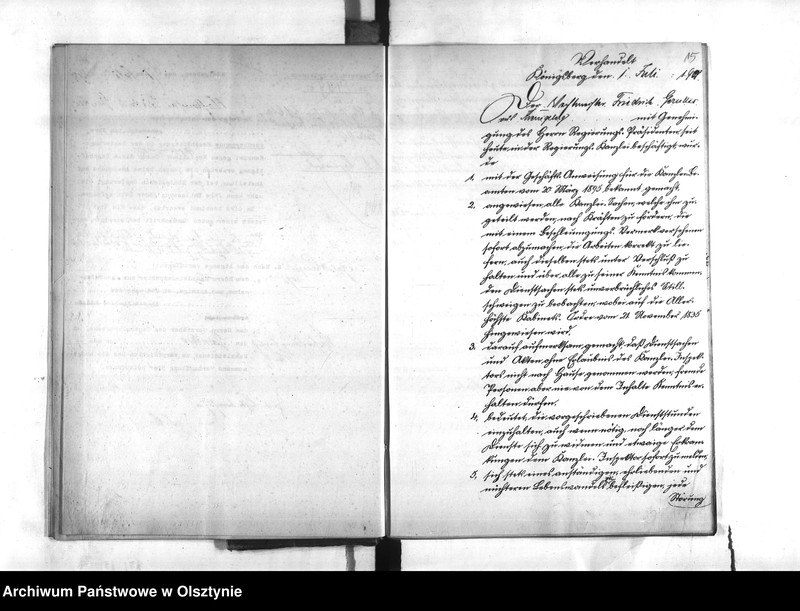 15
Verhandelt
Königsberg den 1. Juli 19
Der Friedrich
aus mit Genehmi-
gung des Herrn Regierungs-Präsidenten seit
heute in der Regierungs-Kanzlei beschäftigt, wur-
de
1. mit der Geschäfts-Anweisung für die Kanzlei-Be-
amten vom 20 März 1895 bekannt gemacht,
2. angewiesen, alle Kanzlei-Sachen, welche ihm zu-
geteilt werden, nach Kräften zu fördern, die
mit einem Beschleunigungs-Vermerk versehenen
sofort abzumachen, die Arbeiten korrekt zu lie-
fern, auch dieselben stets unter Verschluß zu
halten und über alle zu seiner Kenntnis kommen-
den Dienstsachen stets unverbrüchliches Still-
schweigen zu beobachten, wobei auf die Aller-
höchste Kabinets-Ordre vom 21 November 1835
hingewiesen wird.
3. darauf aufmerksam gemacht, daß Dienstsachen
und Akten ohne Erlaubnis des Kanzlei-Inspek-
tors nicht nach Hause genommen werden, fremde
Personen aber nie von dem Inhalte Kenntnis er-
halten dürfen.
4. bedeutet, die vorgeschriebenen Dienststunden
einzuhalten, auch wenn nötig, noch länger dem
Dienste sich zu widmen und etwaige Erkran-
kungen dem Kanzlei-Inspektor sofort zu melden,
5. sich stets eines anständigen, ehrliebenden und
nüchternen Lebenswandels zu befleißigen, jede
Störung
Archiwum Państwowe w Olsztynie